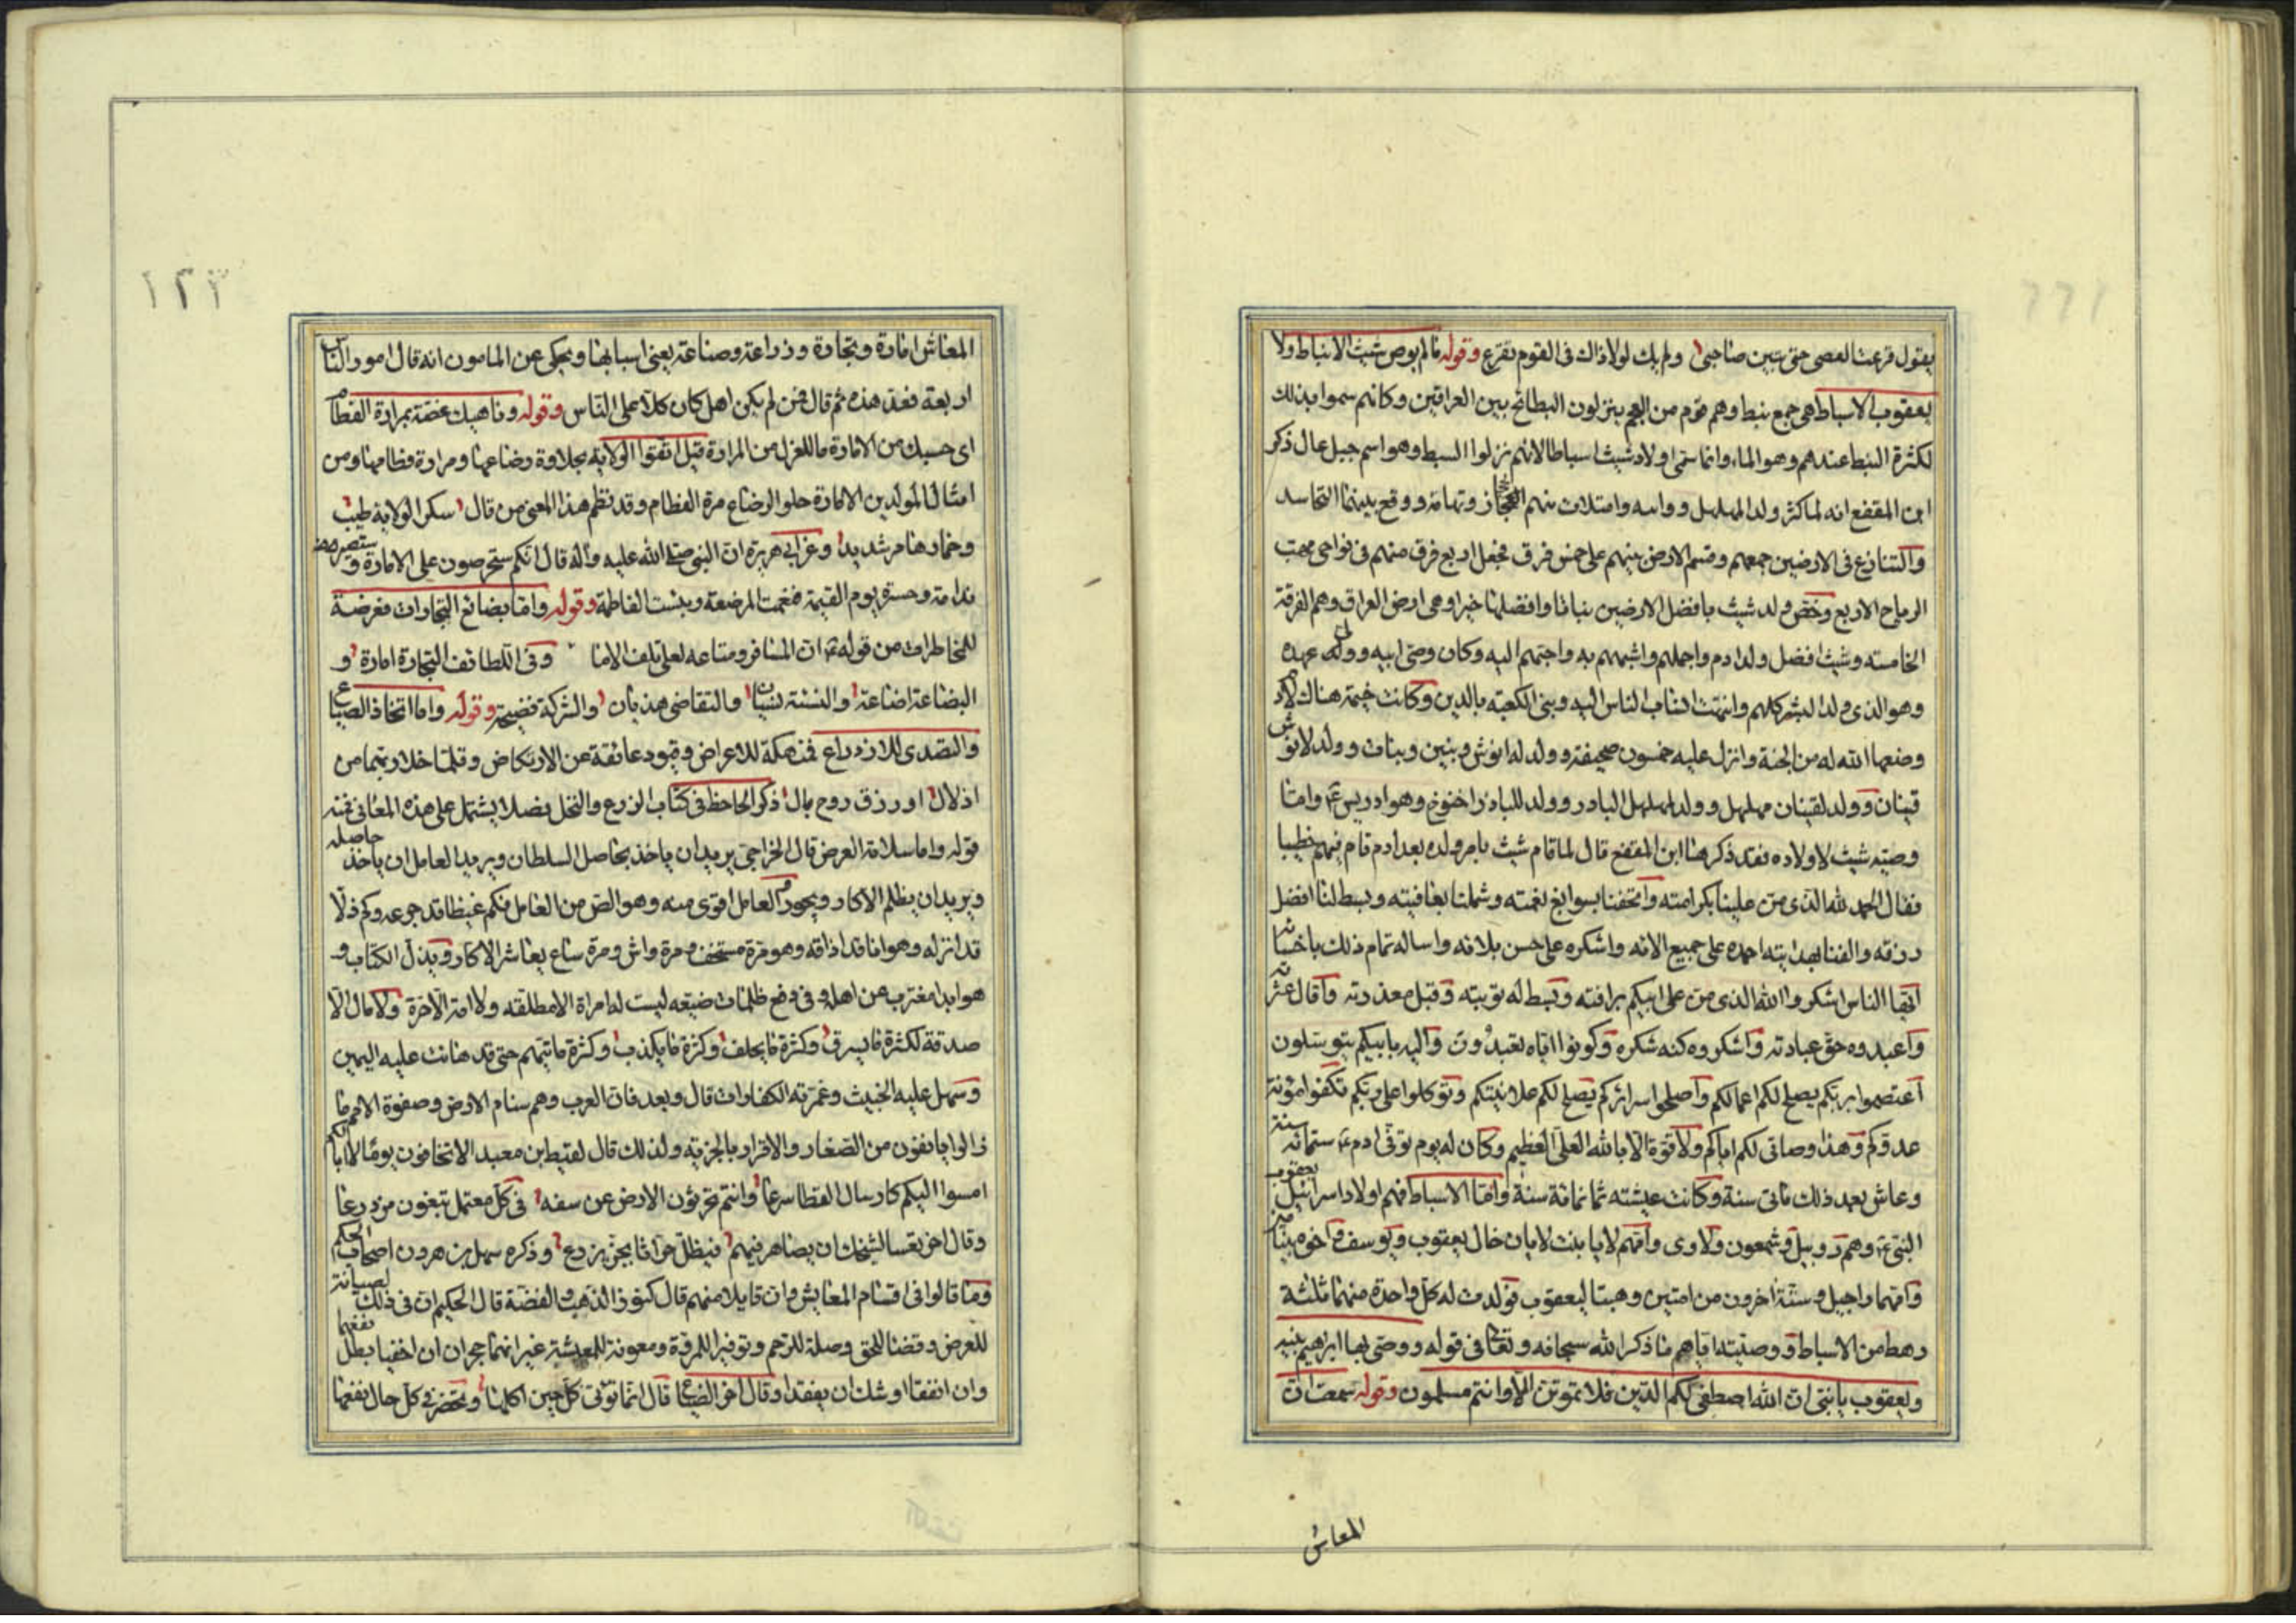 يقول قرعت العصى حتى تبين صاحبى ولم يك لولا ذاك فى القوم تقرع وقوله ما لم يوص شيث الانباط ولا
يعقوب الاسباط هى جمع نبط وهم قوم من العجم ينزلون البطائح بين العراقين وكانهم سموا بذلك
لكثرة النبط عندهم وهو الماء وانما سمى اولاد شيث اسباطا لانهم نزلوا السبط وهو اسم جبل عال ذكر
ابن المقفع انه لما كثر ولد المهلهل ووانسه وامتلات منهم الحجاز وتهامة ووقع بينهما التحاسد
والتنازع فى الارضين جمعهم وقسم الارض بينهم على خمس فرق فجعل اربع فرق منهم فى نواحى مهب
الرياح الاربع وخص ولد شيث بافضل الارضين نباتا وافضلها خيرا وهى ارض العراق وهم الفرقة
الخامسته وشيث افضل ولد ادم واجملهم واشبههم به واحبهم اليه وكان وصى ابيه وولى عهده
وهو الذى ولد البشر كلهم وانتهت انساب الناس اليه وبنى الكعبته بالدين وكانت خيمة هناك لادم
وضعها الله له من الجنة وانزل عليه خمسون صحيفة وولد له انوش وبنين وبنات وولد لانوش
قينان وولد لقينان مهلهل وولد لمهلهل اليادر وولد لليادر اخنوخ وهو ادريس ع وامتا
وصيته شيث لاولاده فقد ذكرها ابن المقفع قال لما قام شيث بامر ولده بعد ادم قام فيهم خطيبا
فقال الحمد لله الذى من علينا بكرامته واتحفنا بسوابغ نعمته وشملنا بعافيته وبسط لنا افضل
رزقه والفنا بهدايته احمده على جميع الائه واشكره على حسن بلائه واساله تمام ذلك باحسانه
ايها الناس اشكروا الله الذى من على ابيكم برافته وبسط له توبته وقبل معذرته واقال عثرته
واعبدوه حق عبادته واشكروه كنه شكره وكونوا اياه تعبدون واليه بابيكم تتوسلون
اعتصموا بربكم يصلح لكم اعمالكم واصلحوا اسرائركم يصلح لكم علانيتكم وتوكلوا على ربكم تكفوا مؤنة
عدوكم وهذا وصاتى لكم اياكم ولا قوة الا بالله العلى العظيم وكان له يوم توفى ادم ع ستمائه سنة
وعاش بعد ذلك مائتى سنة وكانت عيشته ثمانمائة سنة واما الاسباط فهم اولاد اسرائيل يعقوب
النبى ع وهم روبيل وشمعون ولاوى وامهم لايا بنت لايان خال يعقوب ويوسف واخوه بنيامين
وامهما راجيل وستة اخرون من امتين وهبتا ليعقوب فولدت له كل واحدة منهما ثلثة
رهط من الاسباط ووصيته اياهم ما ذكر الله سبحانه وتعالى فى قوله ووصى بها ابراهيم بنيه
ويعقوب يا بنى ان الله اصطفى لكم الدين فلا تموتن الا وانتم مسلمون وقوله سمعت ان
المعاش
١٢٣
المعاش امارة وتجارة وزراعة وصناعة يعنى اسبابها ويحكى عن المامون انه قال امور الناس
اربعة فعد هذه ثم قال فمن لم يكن اهل كان كلا على الناس وقوله وناهيك غصة بمرارة الفطام
اى حسبك من الامارة ما للعزل من المرارة قيل اتقوا الولاية بحلاوة رضاعها ومرارة فطامها ومن
امثال المولدين الامارة حلو الرضاع مرة الفطام وقد نظم هذا المعنى من قال سكر الولاية طيب
وخمارها مر شديد وعن ابى هريرة ان النبى صلى الله عليه وآله قال انكم ستحرصون على الامارة وستصير
ندامة وحسرة يوم القيمة فنعمت المرضعة وبئست الفاطمة وقوله واما بضائع التجارات فعرضة
للمخاطرات من قوله ع ان المسافر ومتاعه لعلى تلف الاما وفى اللطائف التجارة امارة و
البضاعة اضاعة والنسئة نسيان والتقاضى هذيان والشركة فضيحة وقوله واما اتخاذ الضياع
والتصدى للازدراع فمنهكة للاعراض وقيود عائقة عن الارتكاض وقلما خلا ربهما من
اذلال او رزق روح بال ذكر الجاحظ فى كتاب الزرع والنخل فصلا يشتمل على هذه المعانى فمنه
قوله واما سلامة العرض قال الخراجى يريد ان ياخذ بحاصل السلطان ويريد العامل ان ياخذ حاصله
ويريد ان يظلم الاكار ويجور العامل اقوى منه وهو الص من العامل فكم غيظا قد جرعه وكم ذلا
قد انزله وهوانا قد اذاقه وهو مرة مستخف ومرة واش ومرة ساع يعاشر الاكار وبذل الكتاب و
هو ابدا مغترب عن اهله وفى دفع ظلمات ضيعه ليست له امراة الا مطلقة ولا امة الا حرة ولا مال الا
صدقة لكثرة ما يسرق وكثرة ما يحلف وكثرة ما يكذب وكثرة ما يتهم حتى قد هانت عليه اليمين
وسهل عليه الخبيث وغمرته الكفارات قال وبعد فان العرب وهم سنام الارض وصفوة الامم ما
زالوا يانفون من الصغار والاقرار بالجزية ولذلك قال لقيط بن معبد الا تخافون يوما لا ابا لكم
امسوا اليكم كارسال القطا سرعا وانتم تحرثون الارض عن سفه فى كل معتمل تبغون مزدرعا
وقال اخر تعسا لشيخك ان يصاهر فيهم فيظل حراثا يحن بزرع وذكره سهل بن هرون اصحاب الحكم
وما قالوا فى اقسام المعايش وان قايلا منهم قال كنوز الذهب والفضة قال الحكيم ان فى ذلك لصيانة
للعرض وقضا للحق وصلة للرحم وتوفيرا للمرؤة ومعونة للمعيشة غير انهما حجران ان اخفيا بطل نفعهما
وان انفقا اوشك ان يفقدا وقال اخر الضياع قال انما توتى كل حين اكلها وتحضر فى كل حال نفعها